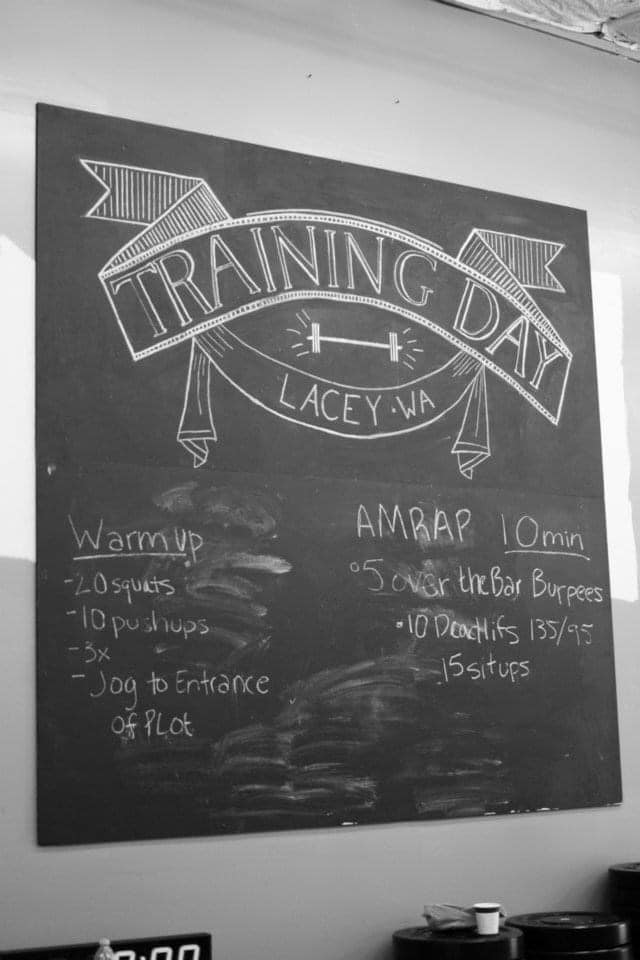 TRAINING DAY
LACEY · WA
Warm up
-20 squats
-10 pushups
-3x
-Jog to Entrance
of PLot
AMRAP 10min
°5 over the Bar Burpees
·10 Deadlifs 135/95
15 situps